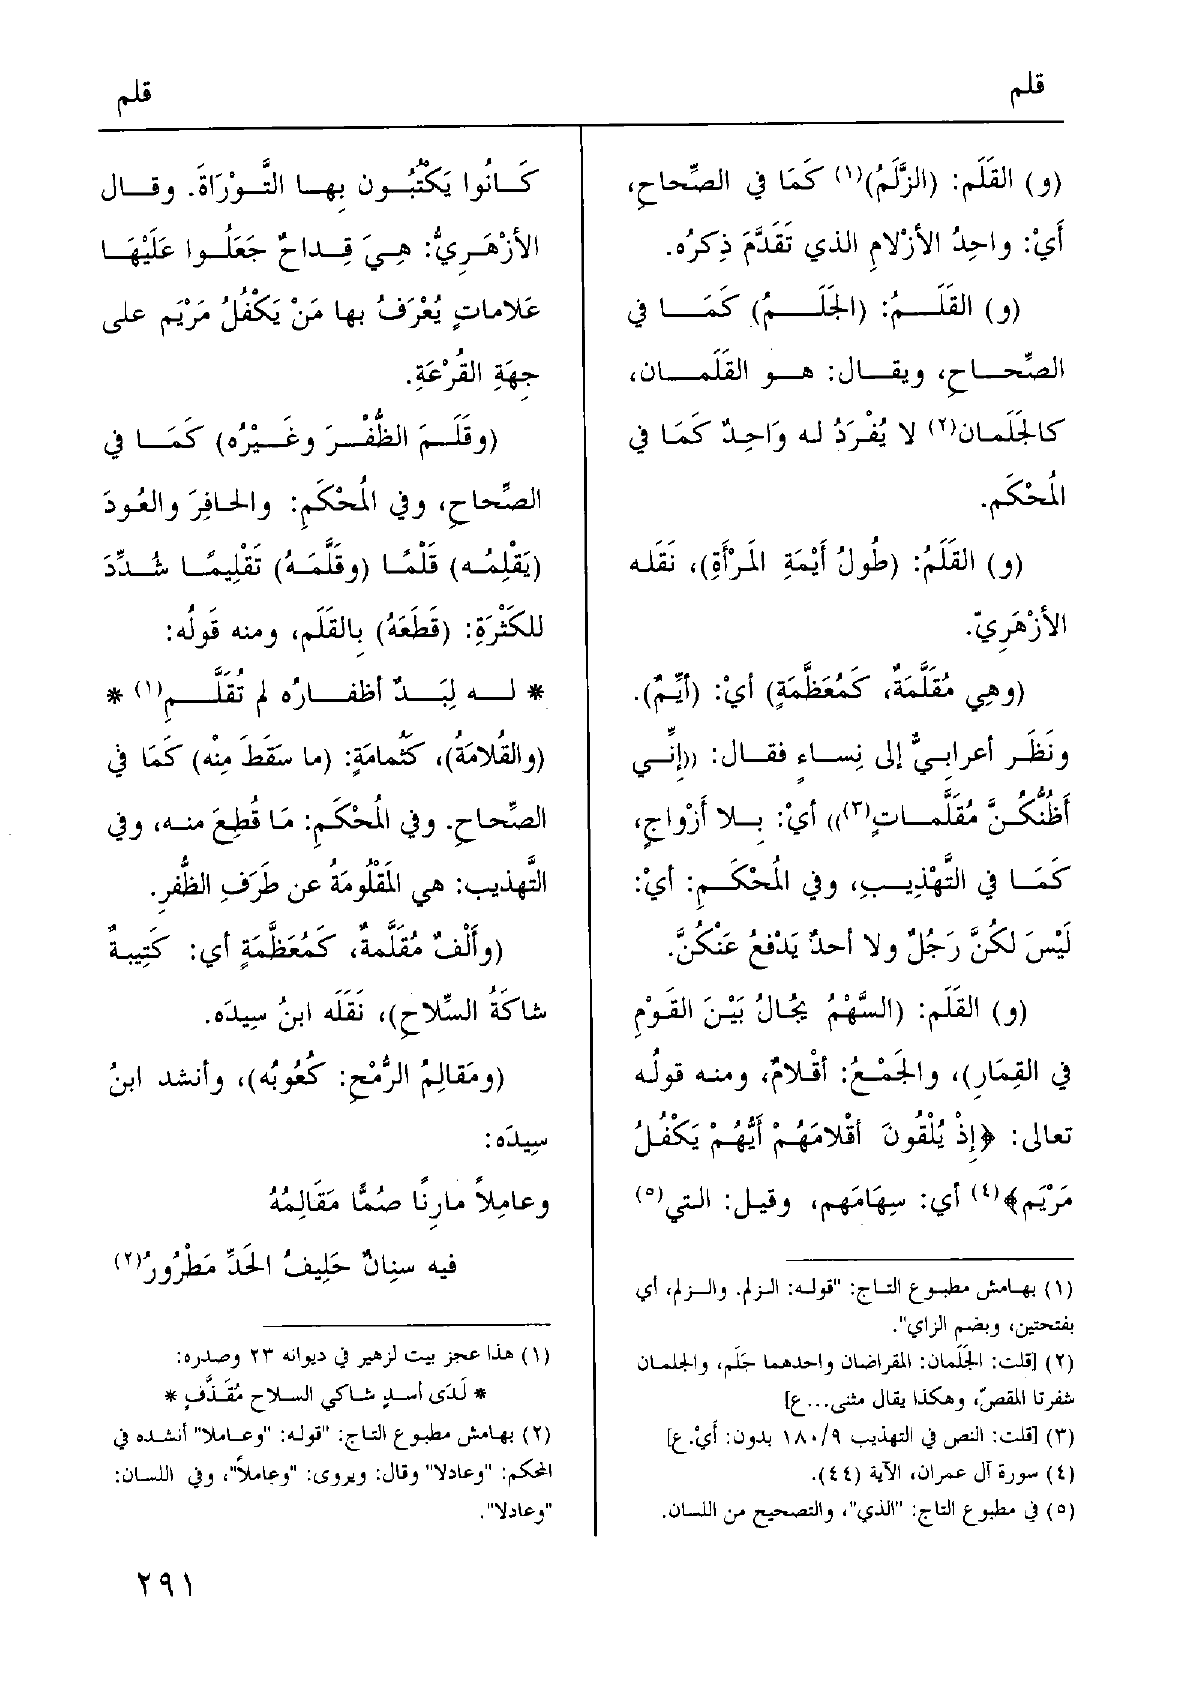 قلم
قلم
(و) القَلَم: (الزَّلَمُ)(١) كَمَا في الصِّحاحِ،
أَيْ: واحِدُ الأزْلامِ الذي تَقَدَّمَ ذِكرُه.
(و) القَلَمُ: (الجَلَمُ) كَمَا في
الصِّحاحِ، ويقال: هو القَلَمان،
كالجَلَمان(٢) لا يُفْرَدُ له وَاحِدٌ كَمَا في
المُحْكَم.
(و) القَلَمُ: (طُولُ أَيْمَةِ المَرْأَةِ)، نَقَله
الأزْهَرِيّ.
(وهي مُقَلَّمَةٌ، كَمُعَظَّمَةٍ) أيْ: (أَيِّمٌ).
ونَظَر أعرابِيٌّ إلى نِساءٍ فقال: ((إنِّي
أَظُنُّكُنَّ مُقَلَّمات(٣))) أيْ: بِلا أزْواجٍ،
كَمَا في التَّهْذِيبِ، وفي المُحْكَمِ: أيْ:
لَيْسَ لكُنَّ رَجُلٌ ولا أحدٌ يَدْفعُ عَنْكُنَّ.
(و) القَلَم: (السَّهْمُ يُجالُ بَيْنَ القَوْمِ
في القِمَارِ)، والجَمْعُ: أقْلامٌ، ومنه قولُه
تعالى: ﴿إِذْ يُلْقُونَ أَقْلامَهُمْ أَيُّهُمْ يَكْفُلُ
مَرْيَم﴾(٤) أي: سِهَامَهم، وقيل: التي(٥)
(١) بهامش مطبوع التاج: "قوله: الزلم. والزلم، أي
بفتحتين، وبضم الزاي".
(٢) [قلت: الجَلَمان: المقراضان واحدهما جَلَم، والجلمان
شفرتا المقصّ، وهكذا يقال مثنى...ع]
(٣) [قلت: النص في التهذيب ١٨٠/٩ بدون: أيْ. ع]
(٤) سورة آل عمران، الآية (٤٤).
(٥) في مطبوع التاج: "الذي"، والتصحيح من اللسان.
كَانُوا يَكْتُبُون بِها التَّوْرَاةَ. وقال
الأزْهَرِيُّ: هِيَ قِداحٌ جَعَلُوا عَلَيْهَا
عَلاماتٍ يُعْرَفُ بها مَنْ يَكْفُلُ مَرْيَم على
جِهَةِ القُرْعَةِ.
(وقَلَمَ الظُّفْرَ وغَيْرُه) كَمَا في
الصِّحاحِ، وفي المُحْكَمِ: والحافِرَ والعُودَ
(يَقْلِمُه) قَلْمًا (وقَلَّمَهُ) تَقْلِيمًا شُدِّدَ
للكَثْرَةِ: (قَطَعَهُ) بِالقَلَمِ، ومنه قَولُه:
* له لِبَدٌ أظفارُه لم تُقَلَّمِ(١) *
(والقُلامَةُ)، كَثُمامَةٍ: (ما سَقَطَ مِنْه) كَمَا في
الصِّحاحِ. وفي المُحْكَمِ: مَا قُطِعَ منه، وفي
التَّهذيب: هي المَقْلُومَةُ عن طَرَفِ الظُّفرِ.
(وأَلْفٌ مُقَلَّمةٌ، كَمُعَظَّمَةٍ أي: كَتِيبةٌ
شاكَةُ السِّلاحِ)، نَقَلَه ابنُ سِيدَه.
(ومَقالِمُ الرُّمْحِ: كُعُوبُه)، وأنشد ابنُ
سِيدَه:
وعامِلاً مارِنًا صُمًّا مَقَالِمُهُ
فيه سنِانٌ حَلِيفُ الحَدِّ مَطْرُورُ(٢)
(١) هذا عجز بيت لزهير في ديوانه ٢٣ وصدره:
* لَدَى أسدٍ شاكي السلاح مُقَذَّفٍ *
(٢) بهامش مطبوع التاج: "قوله: "وعاملا" أنشده في
المحكم: "وعادلا" وقال: ويروى: "وعاملاً"، وفي اللسان:
"وعادلا".
٢٩١